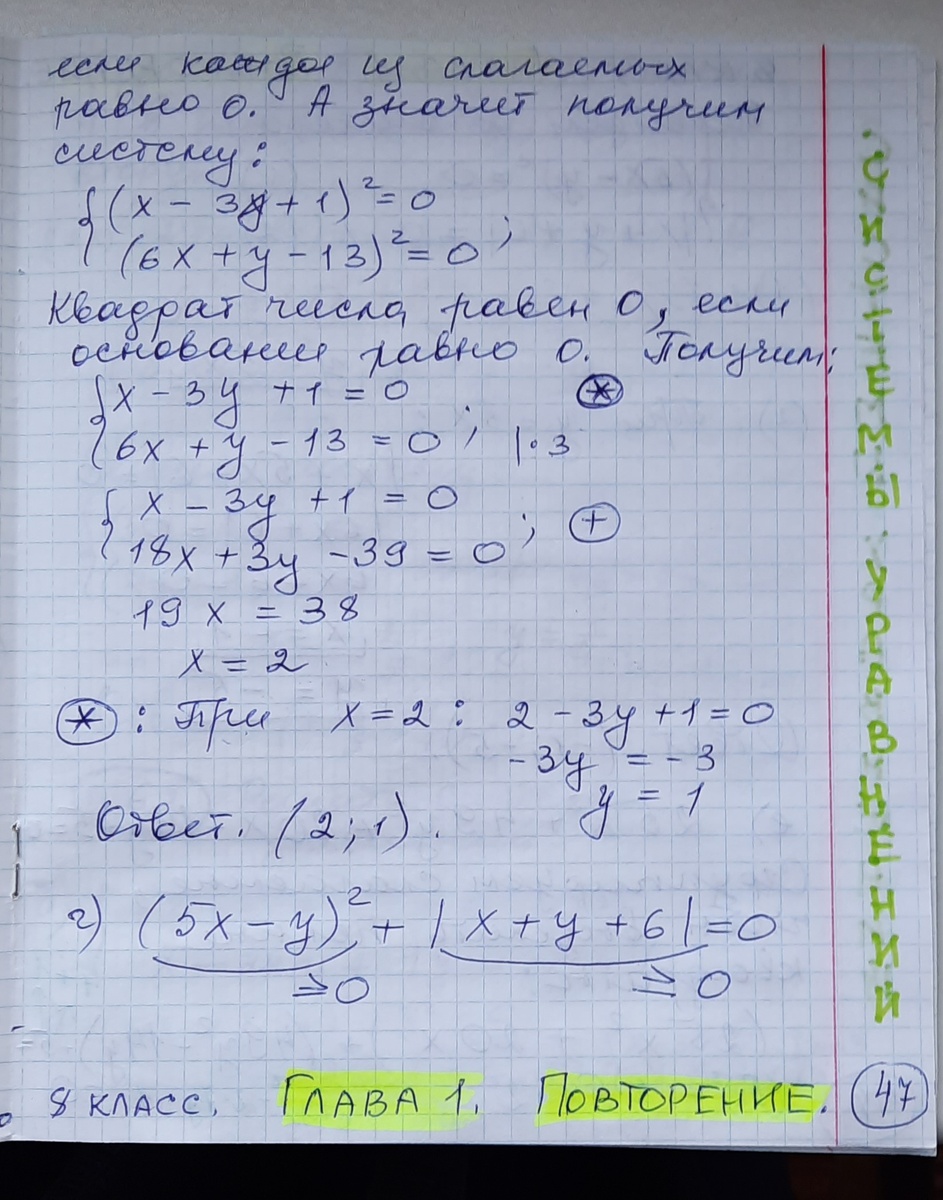 если каждое из слагаемых
равно 0. А значит получим
систему:
{ (x - 3y + 1)² = 0
(6x + y - 13)² = 0 ;
Квадрат числа равен 0, если
основание равно 0. Получим:
{ x - 3y + 1 = 0 (*)
6x + y - 13 = 0 ; |·3
{ x - 3y + 1 = 0
18x + 3y - 39 = 0 ; (+)
19x = 38
x = 2
(*) : При x = 2 : 2 - 3y + 1 = 0
-3y = -3
y = 1
Ответ. (2; 1).
г) (5x - y)² + |x + y + 6| = 0
≥0 ≥0
8 КЛАСС. ГЛАВА 1. ПОВТОРЕНИЕ. 47
· СИСТЕМЫ · УРАВНЕНИЙ